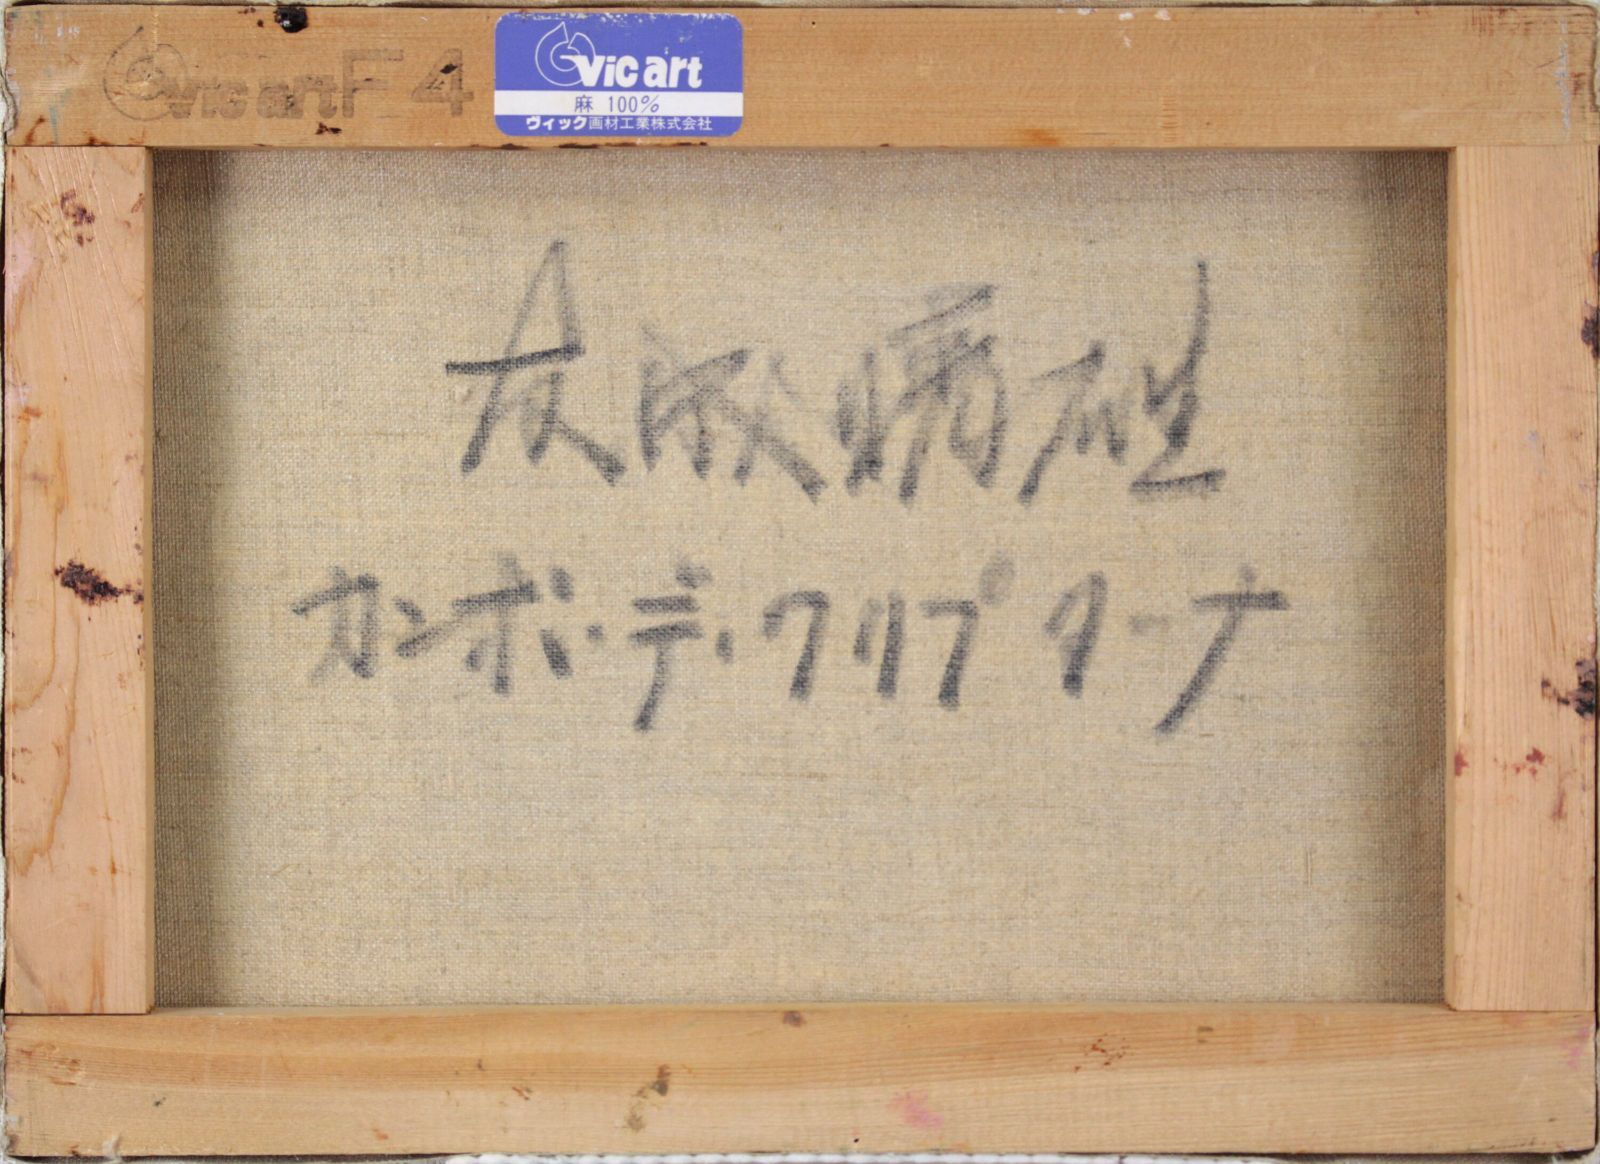 vic art F 4
vic art
麻 100%
ヴィック画材工業株式会社
カンポ・デ・クリプターナ